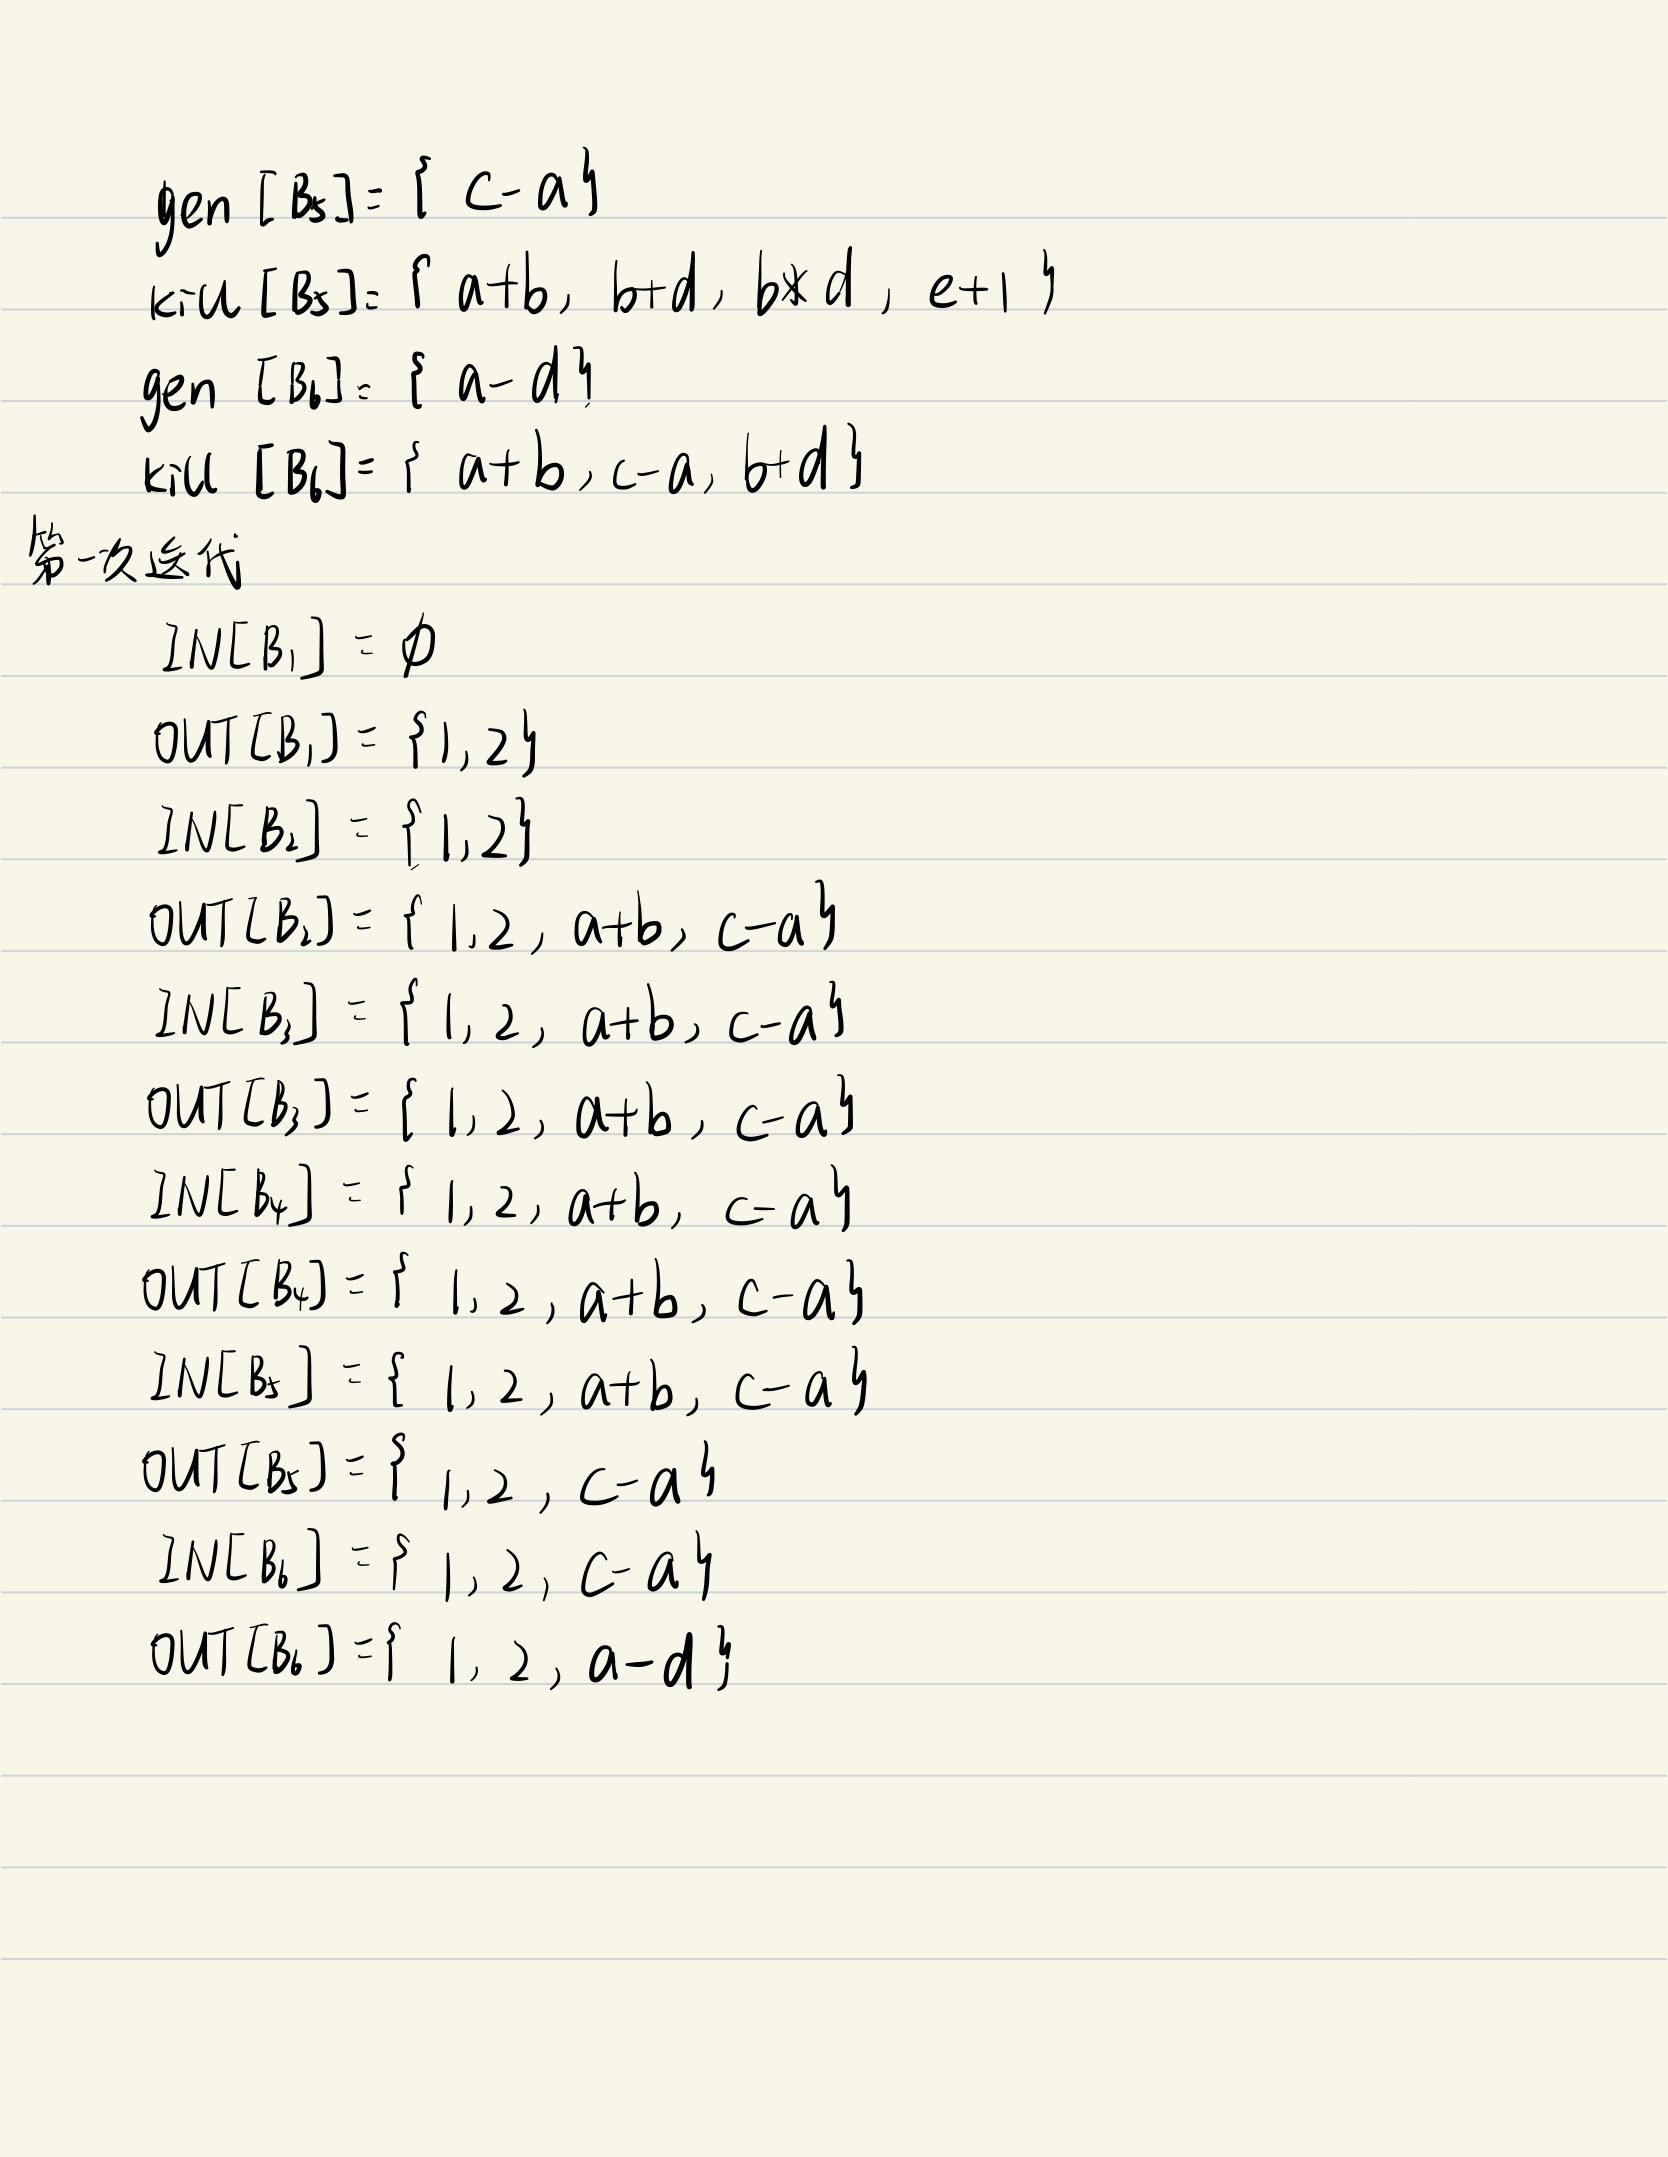 gen [B₅]= { c-a}
kill [B₅]= { a+b, b+d, b*d, e+1 }
gen [B₆]= { a-d}
kill [B₆]= { a+b, c-a, b+d}
第一次迭代
IN[B₁] = ϕ
OUT[B₁] = {1,2}
IN[B₂] = {1,2}
OUT[B₂] = { 1,2, a+b, c-a}
IN[B₃] = { 1,2, a+b, c-a}
OUT[B₃] = { 1,2, a+b, c-a}
IN[B₄] = { 1,2, a+b, c-a}
OUT[B₄] = { 1,2, a+b, c-a}
IN[B₅] = { 1,2, a+b, c-a}
OUT[B₅] = { 1,2, c-a}
IN[B₆] = { 1,2, c-a}
OUT[B₆] = { 1,2, a-d}